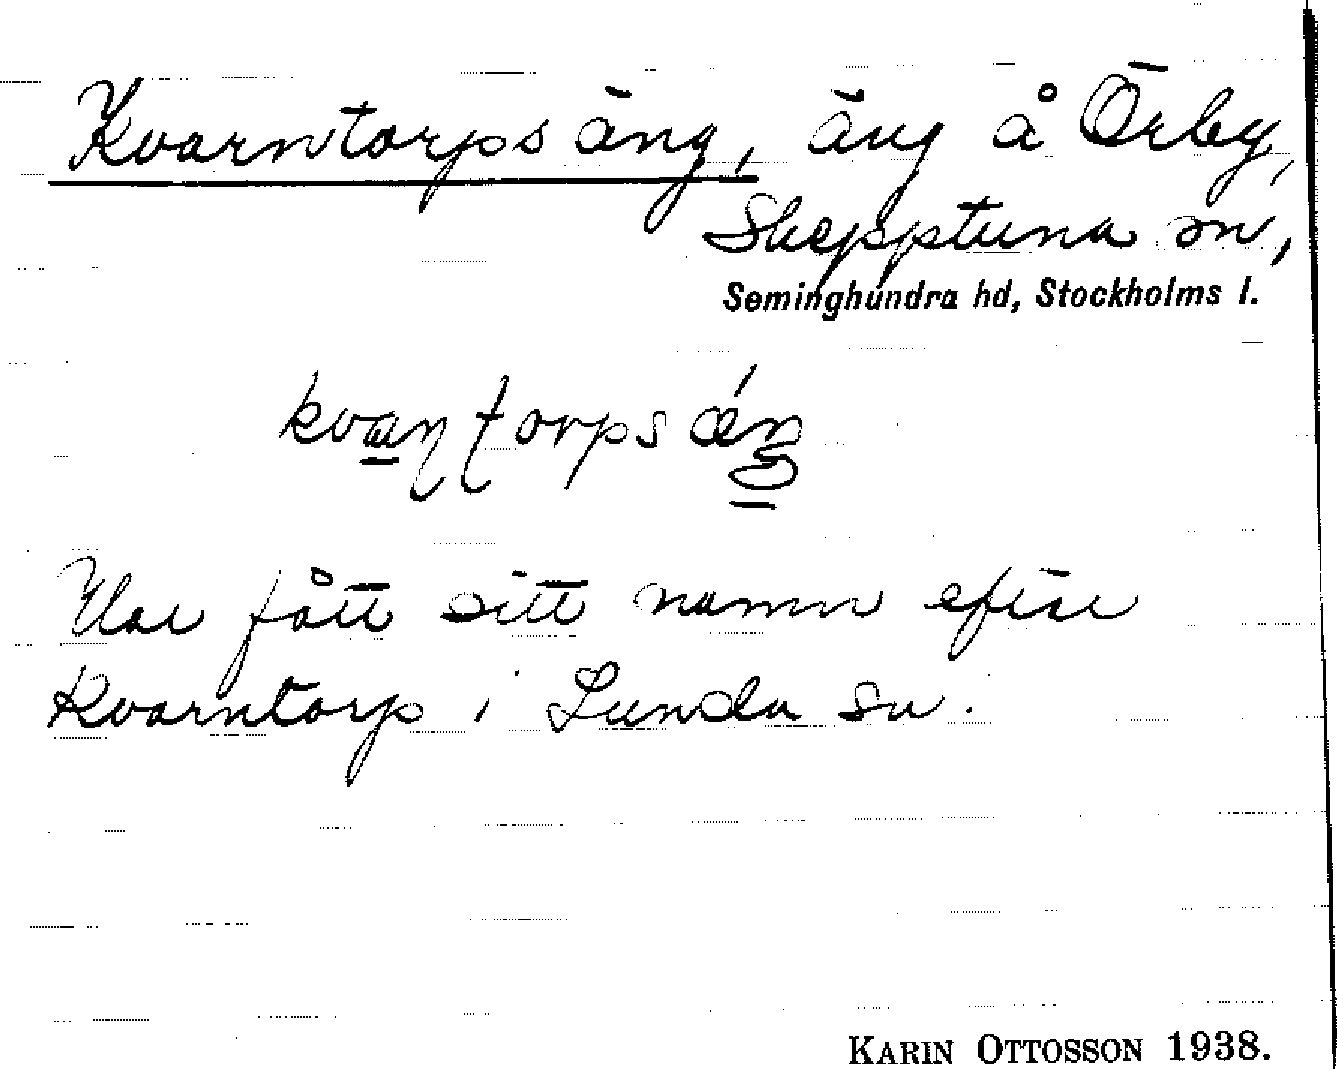 Kvarntorps äng, äng å Örby,
Skepptuna sn,
Seminghundra hd, Stockholms l.
kvaɳʈorpsǽŋ
Har fått sitt namn efter
Kvarntorp i Lunda sn.
KARIN OTTOSSON 1938.